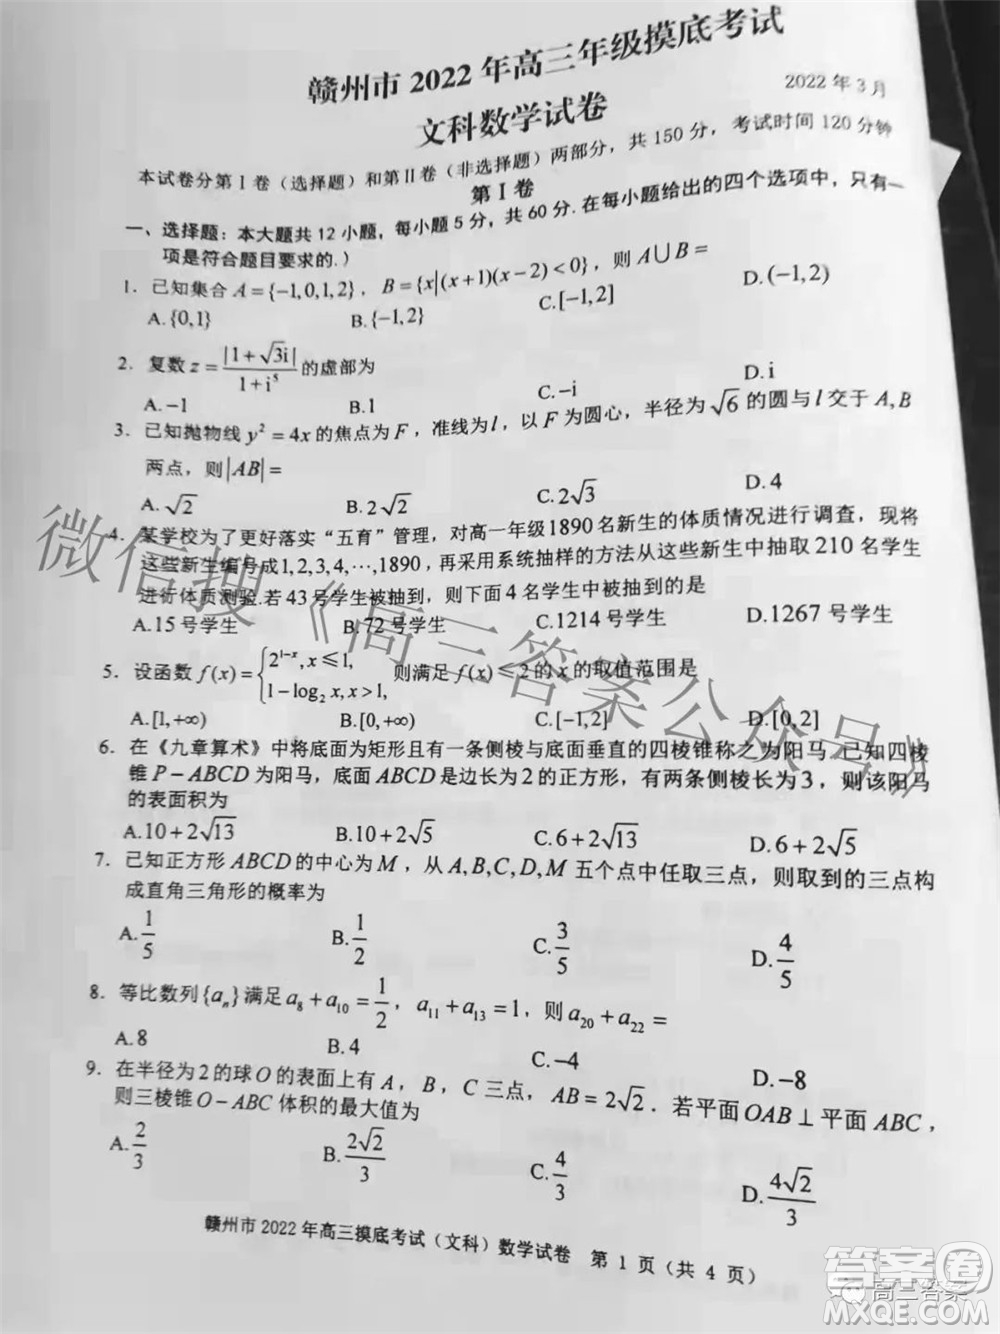 赣州市2022年高三年级摸底考试
2022年3月
文科数学试卷
本试卷分第Ⅰ卷（选择题）和第Ⅱ卷（非选择题）两部分，共150分，考试时间120分钟
第Ⅰ卷
一、选择题：本大题共12小题，每小题5分，共60分.在每小题给出的四个选项中，只有一
项是符合题目要求的.）
1. 已知集合A={-1,0,1,2}，B={x|(x+1)(x-2)<0}，则A∪B=
A.{0,1} B.{-1,2} C.[-1,2] D.(-1,2)
2. 复数z=|1+√3i|/(1+i⁵)的虚部为
A.-1 B.1 C.-i D.i
3. 已知抛物线y²=4x的焦点为F，准线为l，以F为圆心，半径为√6的圆与l交于A,B
两点，则|AB|=
A.√2 B.2√2 C.2√3 D.4
4. 某学校为了更好落实“五育”管理，对高一年级1890名新生的体质情况进行调查，现将
这些新生编号成1,2,3,4,⋯,1890，再采用系统抽样的方法从这些新生中抽取210名学生
进行体质测验.若43号学生被抽到，则下面4名学生中被抽到的是
A.15号学生 B.72号学生 C.1214号学生 D.1267号学生
5. 设函数f(x)={2^(1-x),x≤1, 1-log₂x,x>1, 则满足f(x)≤2的x的取值范围是
A.[1,+∞) B.[0,+∞) C.[-1,2] D.[0,2]
6. 在《九章算术》中将底面为矩形且有一条侧棱与底面垂直的四棱锥称之为阳马.已知四棱
锥P-ABCD为阳马，底面ABCD是边长为2的正方形，有两条侧棱长为3，则该阳马
的表面积为
A.10+2√13 B.10+2√5 C.6+2√13 D.6+2√5
7. 已知正方形ABCD的中心为M，从A,B,C,D,M五个点中任取三点，则取到的三点构
成直角三角形的概率为
A.1/5 B.1/2 C.3/5 D.4/5
8. 等比数列{aₙ}满足a₈+a₁₀=1/2，a₁₁+a₁₃=1，则a₂₀+a₂₂=
A.8 B.4 C.-4 D.-8
9. 在半径为2的球O的表面上有A，B，C三点，AB=2√2．若平面OAB⊥平面ABC，
则三棱锥O-ABC体积的最大值为
A.2/3 B.2√2/3 C.4/3 D.4√2/3
赣州市2022年高三摸底考试（文科）数学试卷 第1页（共4页）
微信搜《高三答案公众号》
答案圈
高三答案
MXQE.COM